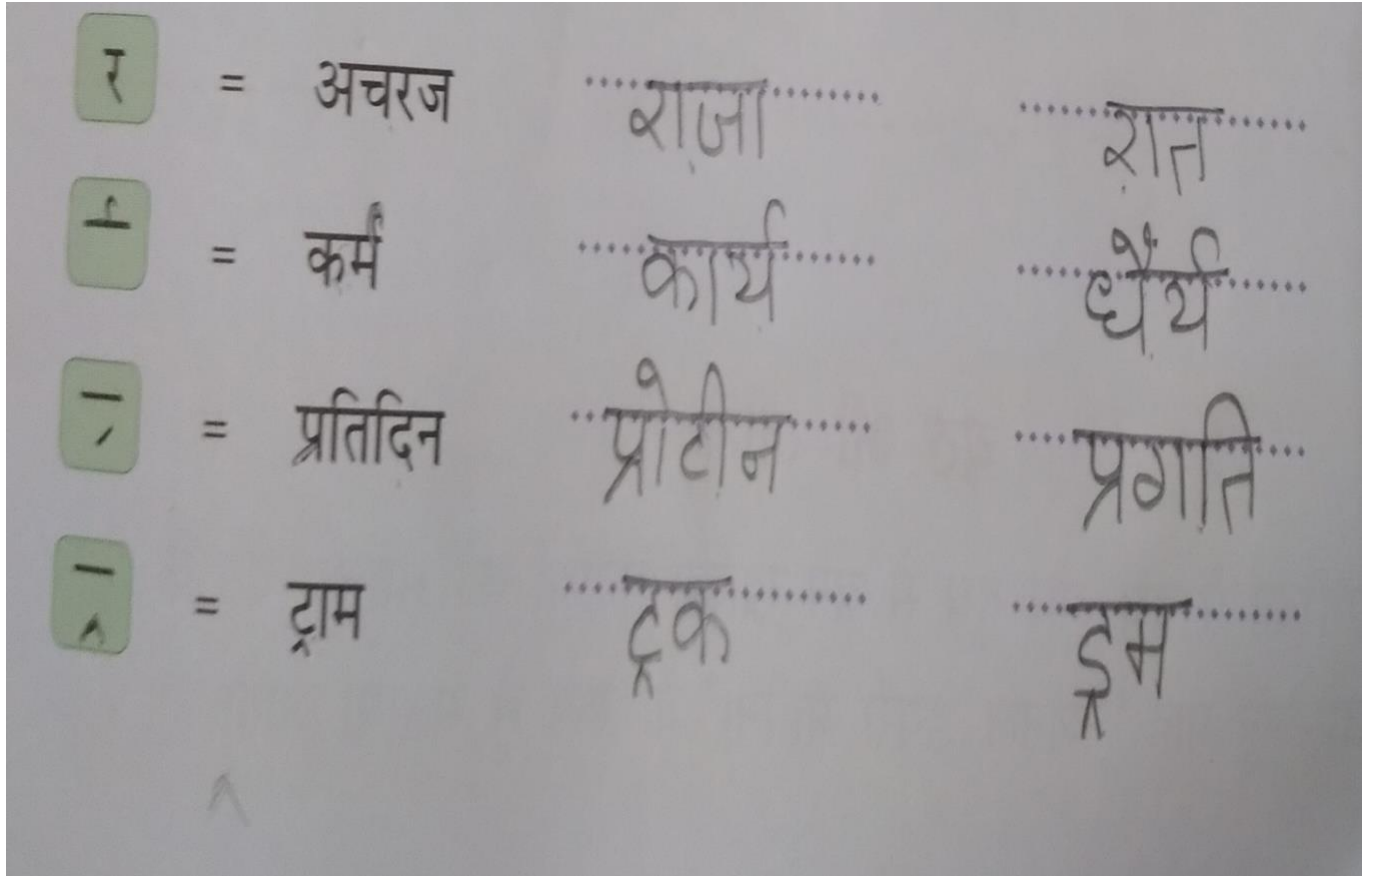 र = अचरज राजा रात
र्  = कर्म कार्य धैर्य
्र = प्रतिदिन प्रोटीन प्रगति
्र = ट्राम ट्रक ड्रम